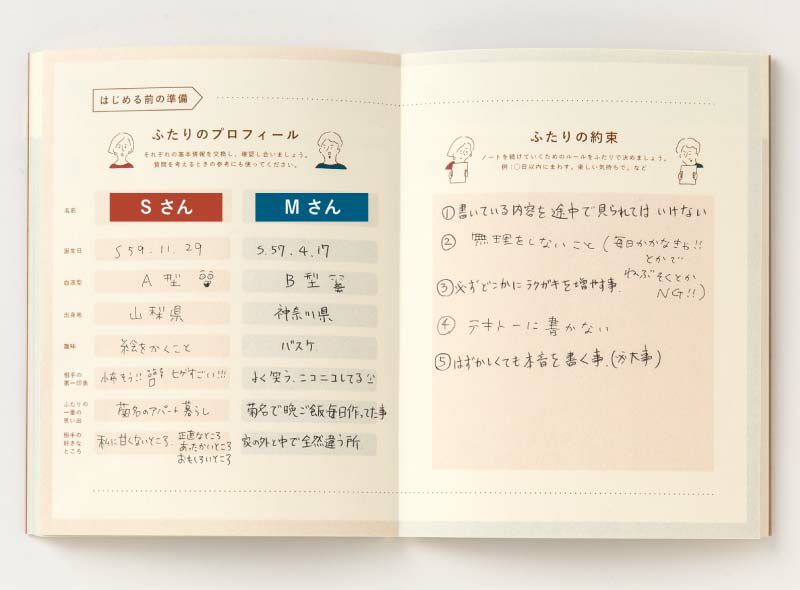 はじめる前の準備
ふたりのプロフィール
それぞれの基本情報を交換し、確認し合いましょう。
質問を考えるときの参考にも使ってください。
名前 Sさん Mさん
誕生日 S59.11.29 S.57.4.17
血液型 A型 B型
出身地 山梨県 神奈川県
趣味 絵をかくこと バスケ
相手の
第一印象 怖そう!! ヒゲすごい!!! よく笑う、ニコニコしてる
ふたりの
一番の
思い出 菊名のアパート暮らし 菊名で晩ご飯毎日作ってた事
相手の
好きな
ところ 私に甘くないところ. 正直なところ
あったかいところ
おもしろいところ 家の外と中で全然違う所
ふたりの約束
ノートを続けていくためのルールをふたりで決めましょう。
例:○日以内にまわす、楽しい気持ちで、など
①書いている内容を途中で見られてはいけない
② 無理をしないこと(毎日かかなきゃ!!
とかで
ねぶそくとか
NG!!)
③必ずどこかにラクガキを増やす事.
④ テキトーに書かない
⑤はずかしくても本音を書く事.(大事)